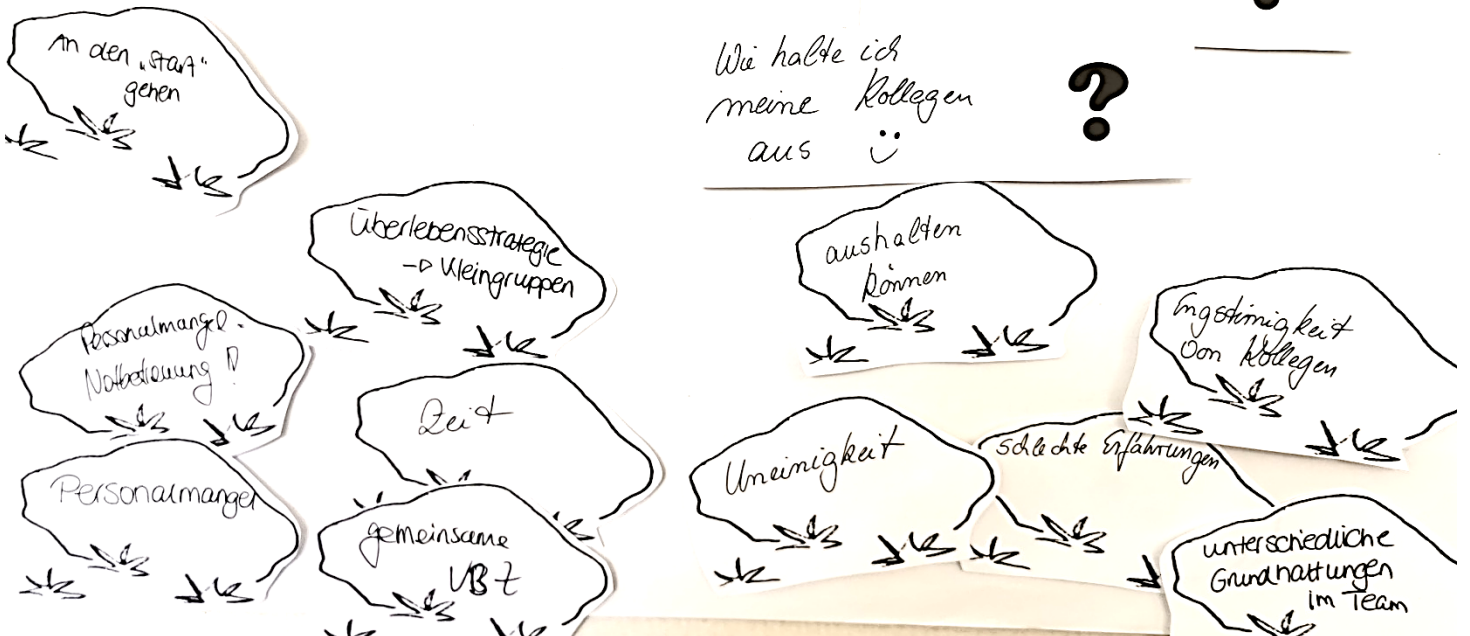 An den „Start"
gehen
Wie halte ich
meine Kollegen
aus ☺
?
Überlebensstrategie
→ Kleingruppen
aushalten
können
Personalmangel.
Notbetreuung!
Engstirnigkeit
von Kollegen
Zeit
Uneinigkeit
schlechte Erfahrungen
Personalmangel
gemeinsame
VBZ
unterschiedliche
Grundhaltungen
im Team